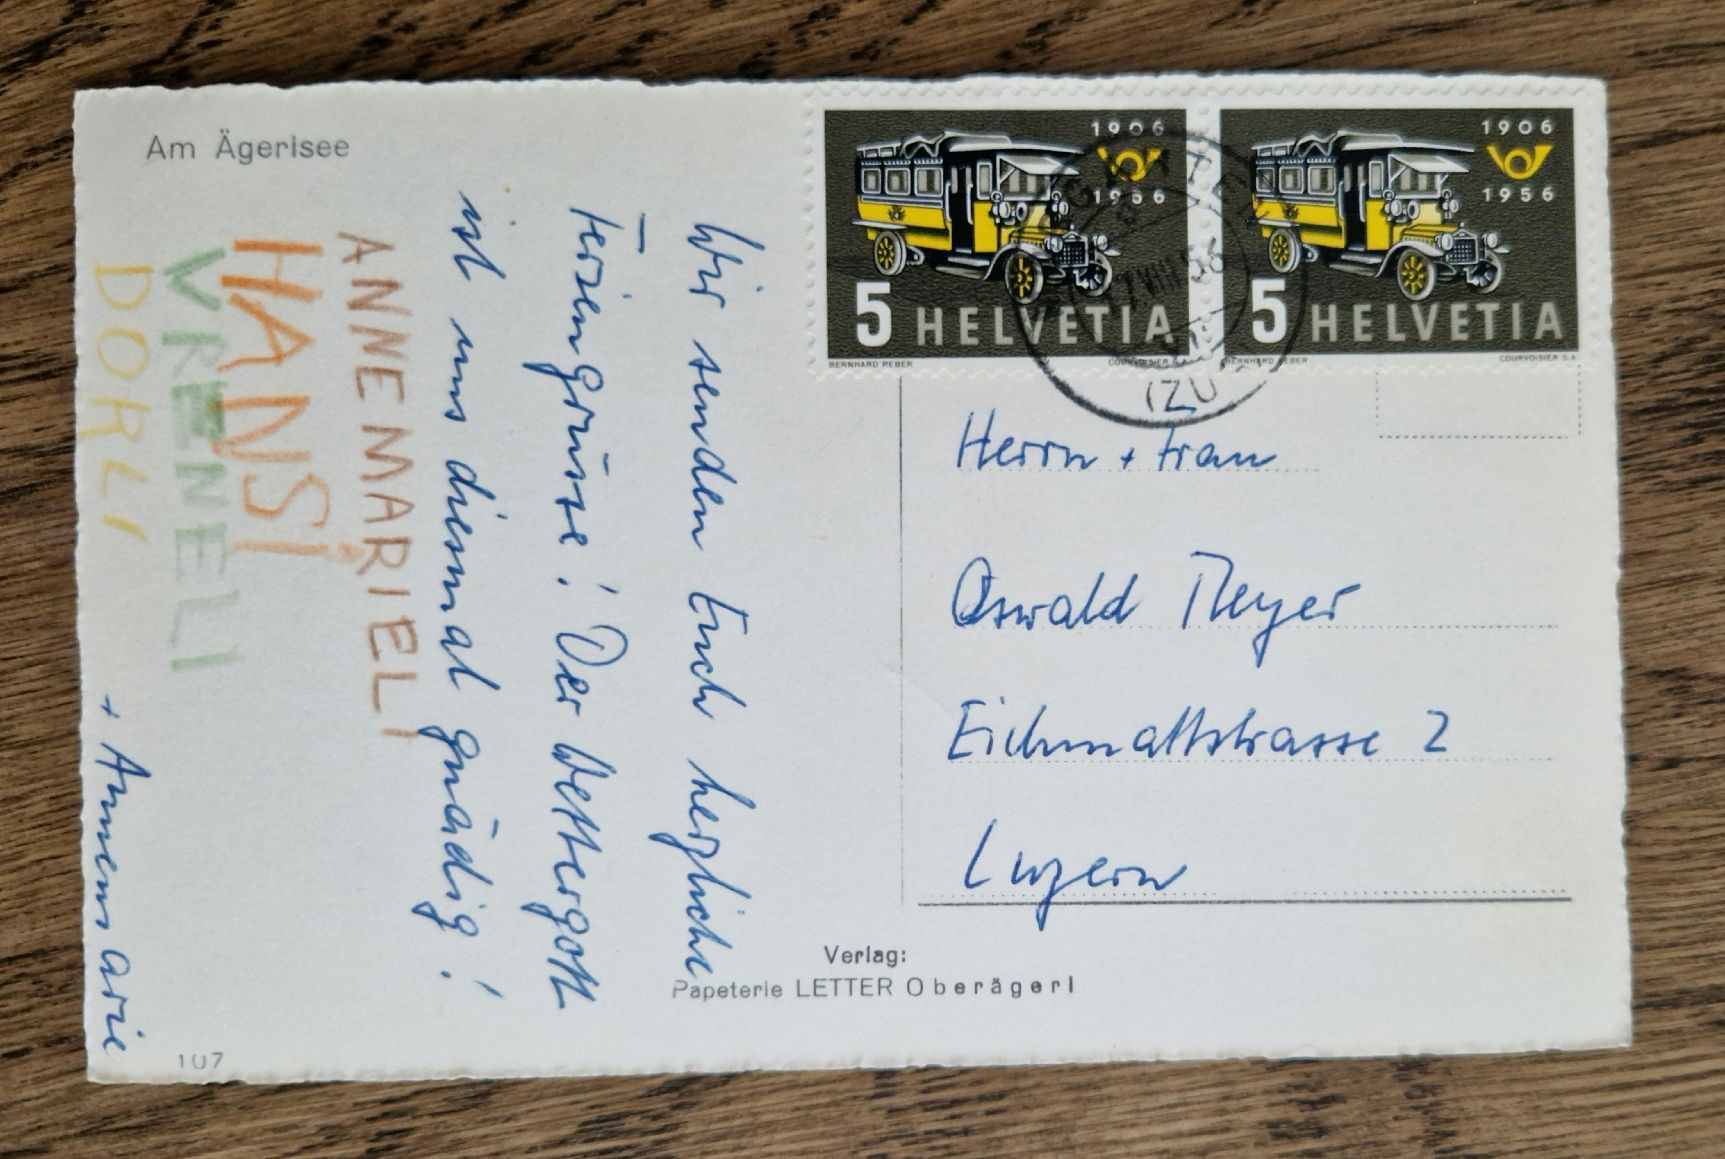 Am Ägerisee
Wir senden Euch herzliche
Feriengrüsse! Der Wettergott
ist uns diesmal gnädig!
ANNEMARIELI
HANSI
VRENELI
DORLI
+ Annemarie
1906
1956
5 HELVETIA
BERNHARD REBER COURVOISIER S.A.
1906
1956
5 HELVETIA
BERNHARD REBER COURVOISIER S.A.
VIII 56
(ZUG)
Herrn + Frau
Oswald Meyer
Eichmattstrasse 2
Luzern
Verlag:
Papeterie LETTER Oberägeri
107